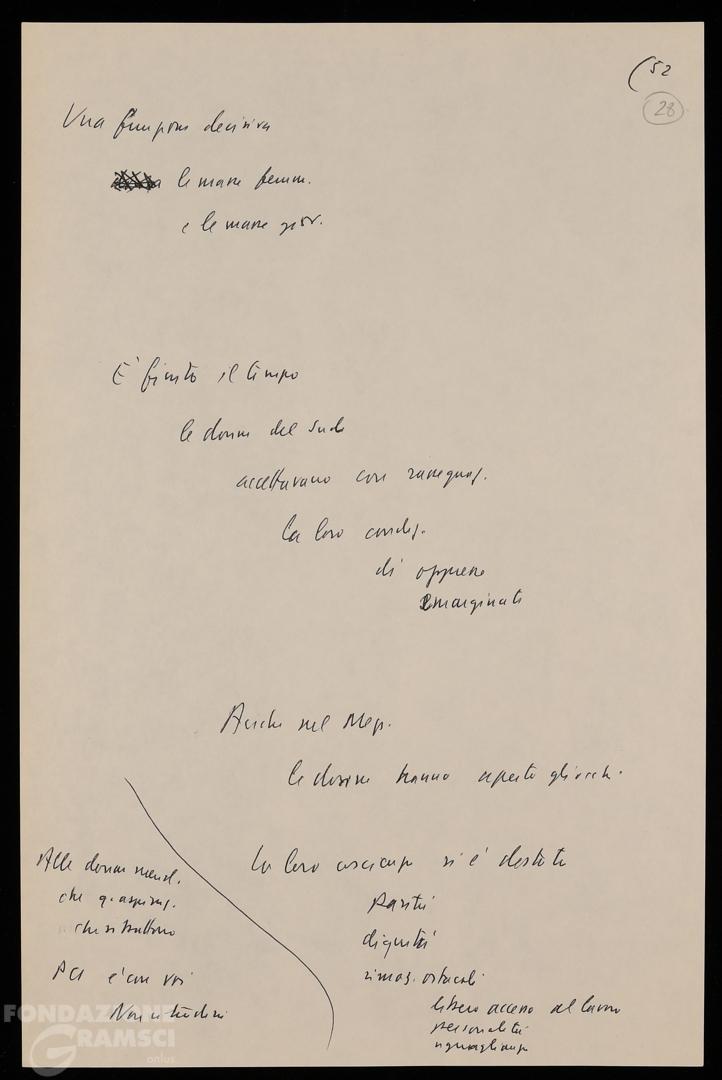 (52
28
Una funzione decisiva
le masse femm.
e le masse giov.
E' finito il tempo
le donne del Sud
accettavano con rassegnaz.
la loro condiz.
di oppresse
emarginate
Anche nel Mezz.
le donne hanno aperto gli occhi.
La loro coscienza si è destata
Parità
dignità
rimoz. ostacoli
libero accesso al lavoro
personalità
uguaglianza
Alle donne merid.
che
che si battono
PCI è con voi
Non vi
FONDAZIONE
GRAMSCI
onlus